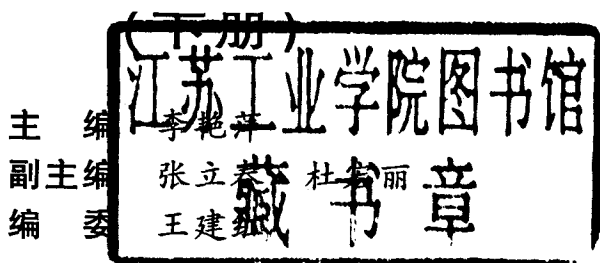 （下册）
江苏工业学院图书馆
主 编 李艳萍
副主编 张立春 杜 丽
藏书章
编 委 王建